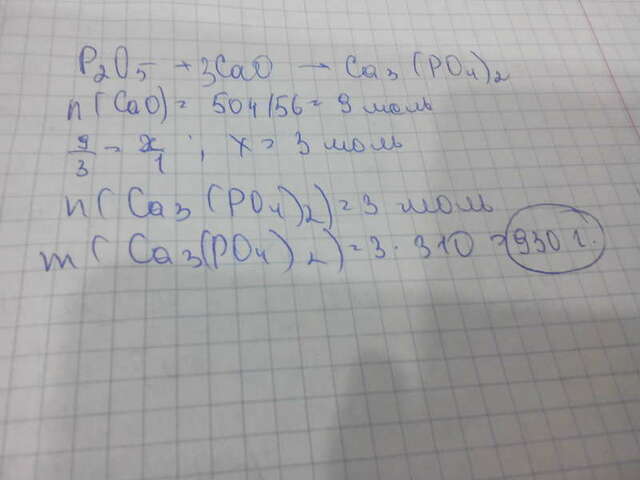 P₂O₅ + 3CaO → Ca₃(PO₄)₂
n(CaO) = 504/56 = 9 моль
9/3 = x/1 ; x = 3 моль
n(Ca₃(PO₄)₂) = 3 моль
m(Ca₃(PO₄)₂) = 3 · 310 = 930 г.